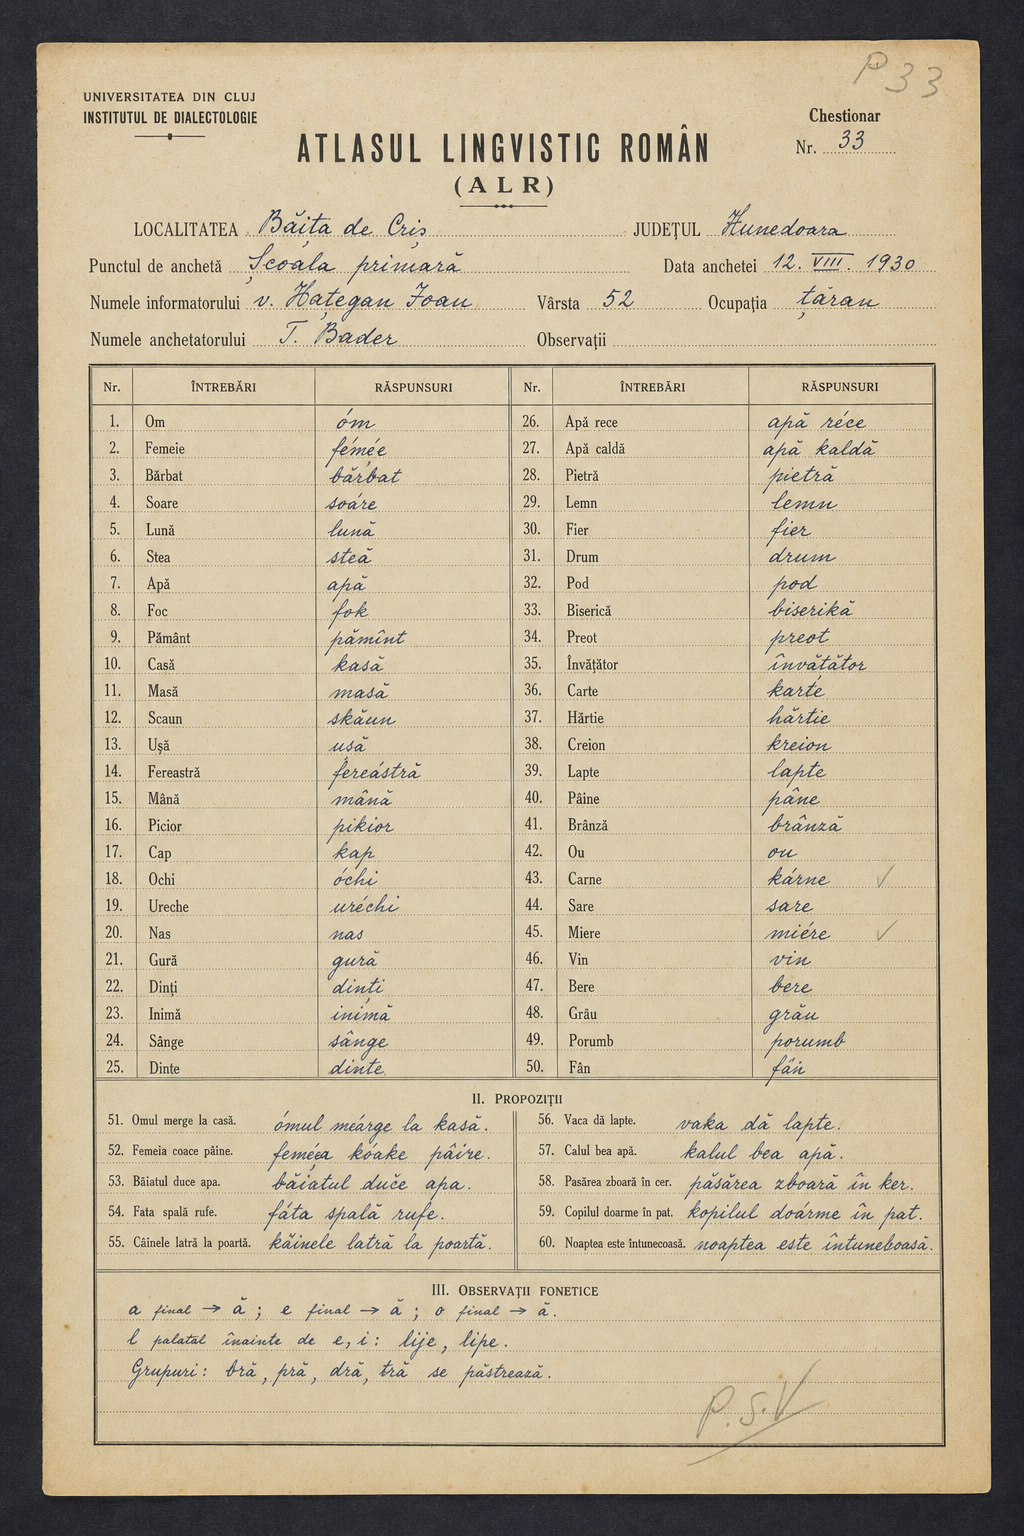 P 33
UNIVERSITATEA DIN CLUJ
INSTITUTUL DE DIALECTOLOGIE
Chestionar
Nr. 33
ATLASUL LINGVISTIC ROMÂN
(ALR)
LOCALITATEA Băița de Criș JUDEȚUL Hunedoara
Punctul de anchetă Școala primară Data anchetei 12. VIII. 1930
Numele informatorului v. Hațegan Ioan Vârsta 52 Ocupația țăran
Numele anchetatorului T. Bader Observații
Nr. ÎNTREBĂRI RĂSPUNSURI Nr. ÎNTREBĂRI RĂSPUNSURI
1. Om óm 26. Apă rece apă réce
2. Femeie féméе 27. Apă caldă apă kaldă
3. Bărbat bărbat 28. Pietră pietră
4. Soare soáre 29. Lemn lemn
5. Lună lună 30. Fier fier
6. Stea steă 31. Drum drum
7. Apă apă 32. Pod pod
8. Foc fok 33. Biserică biserikă
9. Pământ pămînt 34. Preot preot
10. Casă kasă 35. Învățător învătător
11. Masă masă 36. Carte karté
12. Scaun skăun 37. Hărtie hărtie
13. Ușă usă 38. Creion kreion
14. Fereastră fereástră 39. Lapte lapte
15. Mână mână 40. Pâine pâne
16. Picior pikior 41. Brânză brânză
17. Cap kap 42. Ou ou
18. Ochi óchi 43. Carne kárne ✓
19. Ureche uréchi 44. Sare sare
20. Nas nas 45. Miere miére ✓
21. Gură gură 46. Vin vin
22. Dinți dinți 47. Bere bere
23. Inimă inimă 48. Grău grău
24. Sânge sânge 49. Porumb porumb
25. Dinte dinte 50. Fân fân
II. PROPOZIȚII
51. Omul merge la casă. ómul meárge la kasă. 56. Vaca dă lapte. vaka dă lapte.
52. Femeia coace pâine. feméea kóake pâire. 57. Calul bea apă. kalul bea apă.
53. Băiatul duce apa. băiatul duče apa. 58. Pasărea zboară în cer. păsărea zboară în ker.
54. Fata spală rufe. fáta spală rufe. 59. Copilul doarme în pat. kopilul doárme în pat.
55. Câinele latră la poartă. kăinele latră la poartă. 60. Noaptea este întunecoasă. noaptea este întuneboasă.
III. OBSERVAȚII FONETICE
a final → ă ; e final → ă ; o final → ă.
l palatal înainte de e, i : lije, lipe.
Grupuri: bră, pră, dră, tră se păstrează.
P. S. V